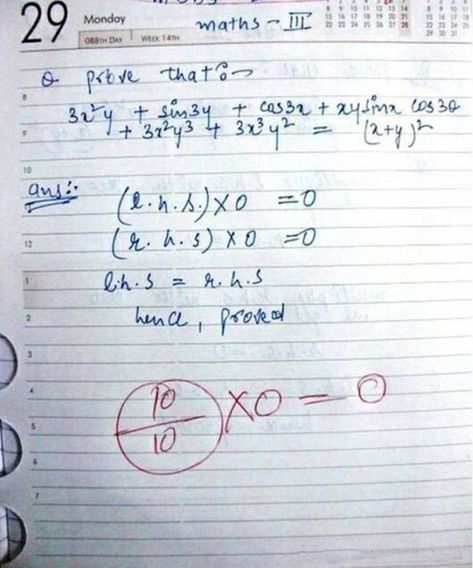 29 Monday
088th DAY WEEK 14TH
maths - III
Q prove that:-
3x²y + sin3y + cos3x + xysinx cos3θ
+ 3x²y³ + 3x³y² = (x+y)²
ans:-
(l.h.s.) X 0 = 0
(r.h.s) X 0 = 0
l.h.s = r.h.s
hence, proved
10/10 X 0 = 0
8
9
10
12
1
2
3
4
5
6
7